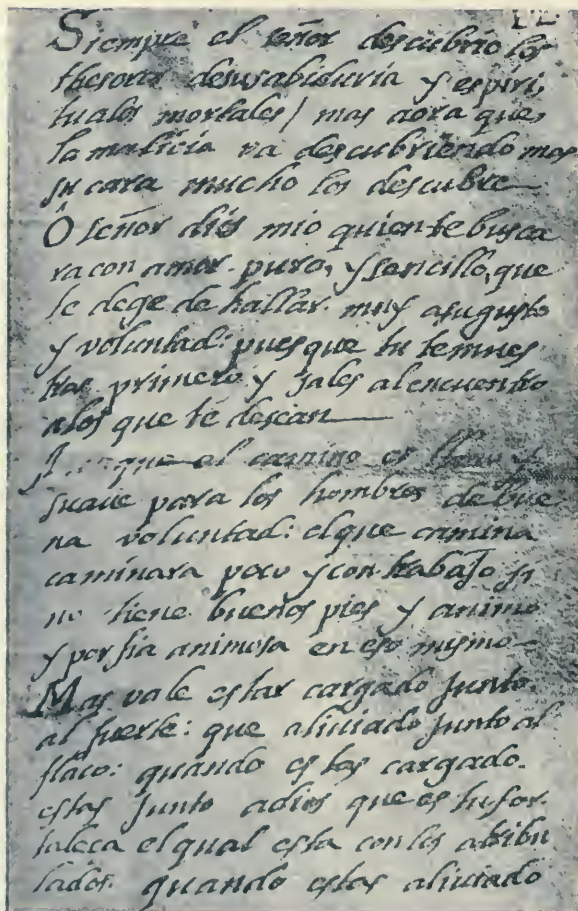 Siempre el señor descubrio los
thesoros desusabiduria y espiri,
tu alos mortales / mas aora que,
la malicia va descubriendo mas
su cara mucho los descubre
O señor dios mio quien te busca
ra con amor puro, y sencillo, que
te dege de hallar muy asugusto
y voluntad: pues que tu te mues
tras primero y sales al encuentro
alos que te desean
Aunque el camino es llano y
suaue para los hombres de bue
na voluntad: el que camina
caminara poco y con trabajo si
no tiene buenos pies y animo
y porfia animosa en eso mismo
Mas vale estar cargado junto
al fuerte: que aliuiado junto al
flaco: quando estas cargado.
estas junto adios que es tu for
taleça el qual esta con los atribu
lados. quando estas aliuiado